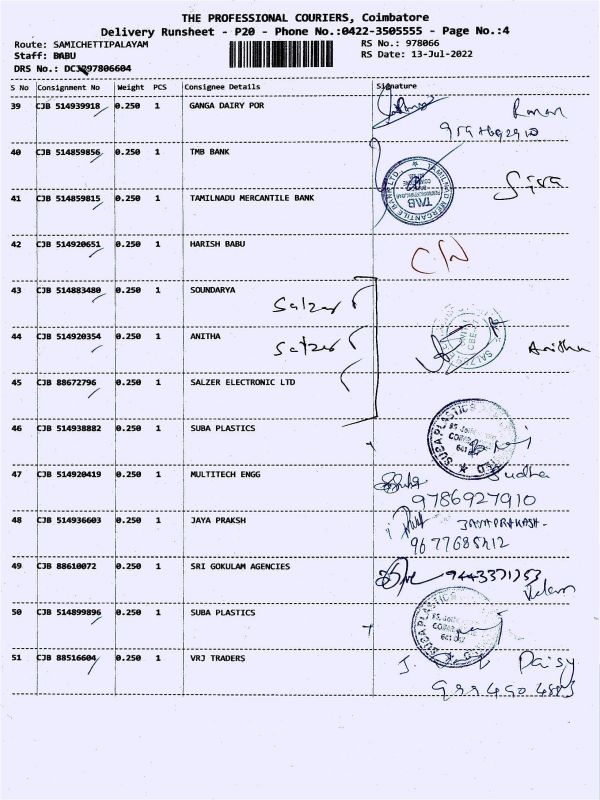 THE PROFESSIONAL COURIERS, Coimbatore
Delivery Runsheet - P20 - Phone No.:0422-3505555 - Page No.:4
Route: SAMICHETTIPALAYAM
RS No.: 978066
Staff: BABU
RS Date: 13-Jul-2022
DRS No.:
S No Consignment No Weight PCS Consignee Details Signature
39 CJB 514939918 0.250 1 GANGA DAIRY POR
40 CJB 514859856 0.250 1 TMB BANK
41 CJB 514859815 0.250 1 TAMILNADU MERCANTILE BANK Siva
42 CJB 514920651 0.250 1 HARISH BABU
43 CJB 514883480 0.250 1 SOUNDARYA
Salzer
44 CJB 514920354 0.250 1 ANITHA
Salzer Anitha
45 CJB 88672796 0.250 1 SALZER ELECTRONIC LTD
46 CJB 514938882 0.250 1 SUBA PLASTICS
47 CJB 514920419 0.250 1 MULTITECH ENGG Sudha
9786927910
48 CJB 514936603 0.250 1 JAYA PRAKSH JAYAPRAKASH
9677685212
49 CJB 88610072 0.250 1 SRI GOKULAM AGENCIES
9443371753
50 CJB 514899896 0.250 1 SUBA PLASTICS
51 CJB 88516604 0.250 1 VRJ TRADERS Daisy